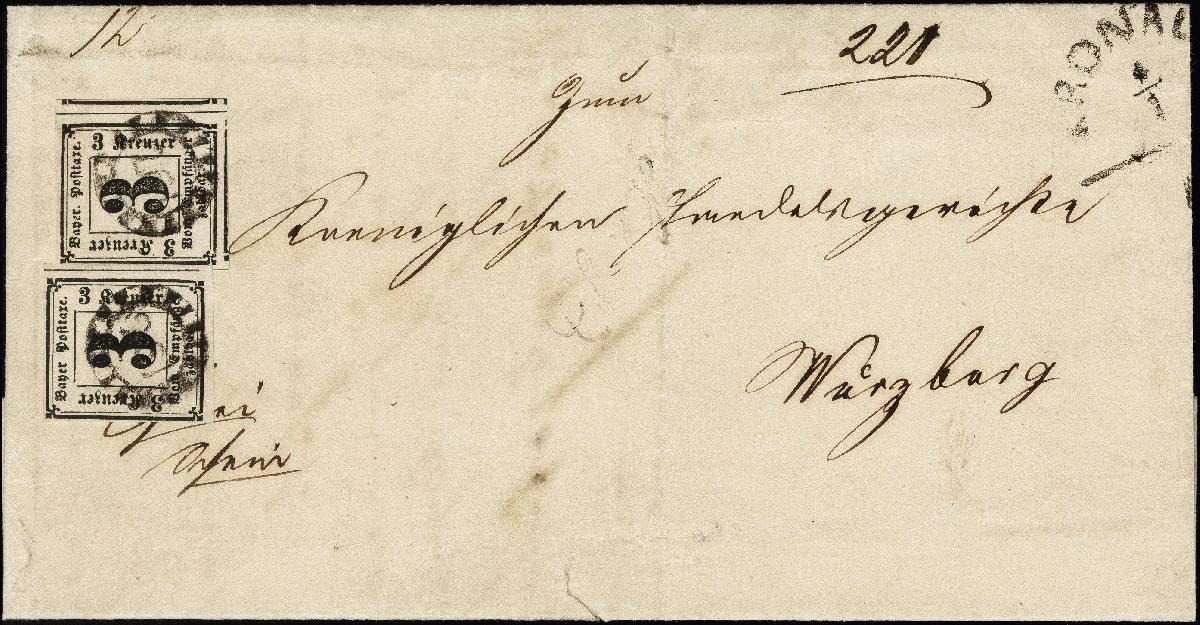 12
221
KRONAC
4/7
Zum
Koeniglichen Handelsgerichte
Würzburg
frei
Schein
3 Kreuzer
Bayer. Posttaxe.
Vom Empfänger
zahlbar
3
3 Kreuzer
3 Kreuzer
Bayer. Posttaxe.
Vom Empfänger
zahlbar
3
3 Kreuzer